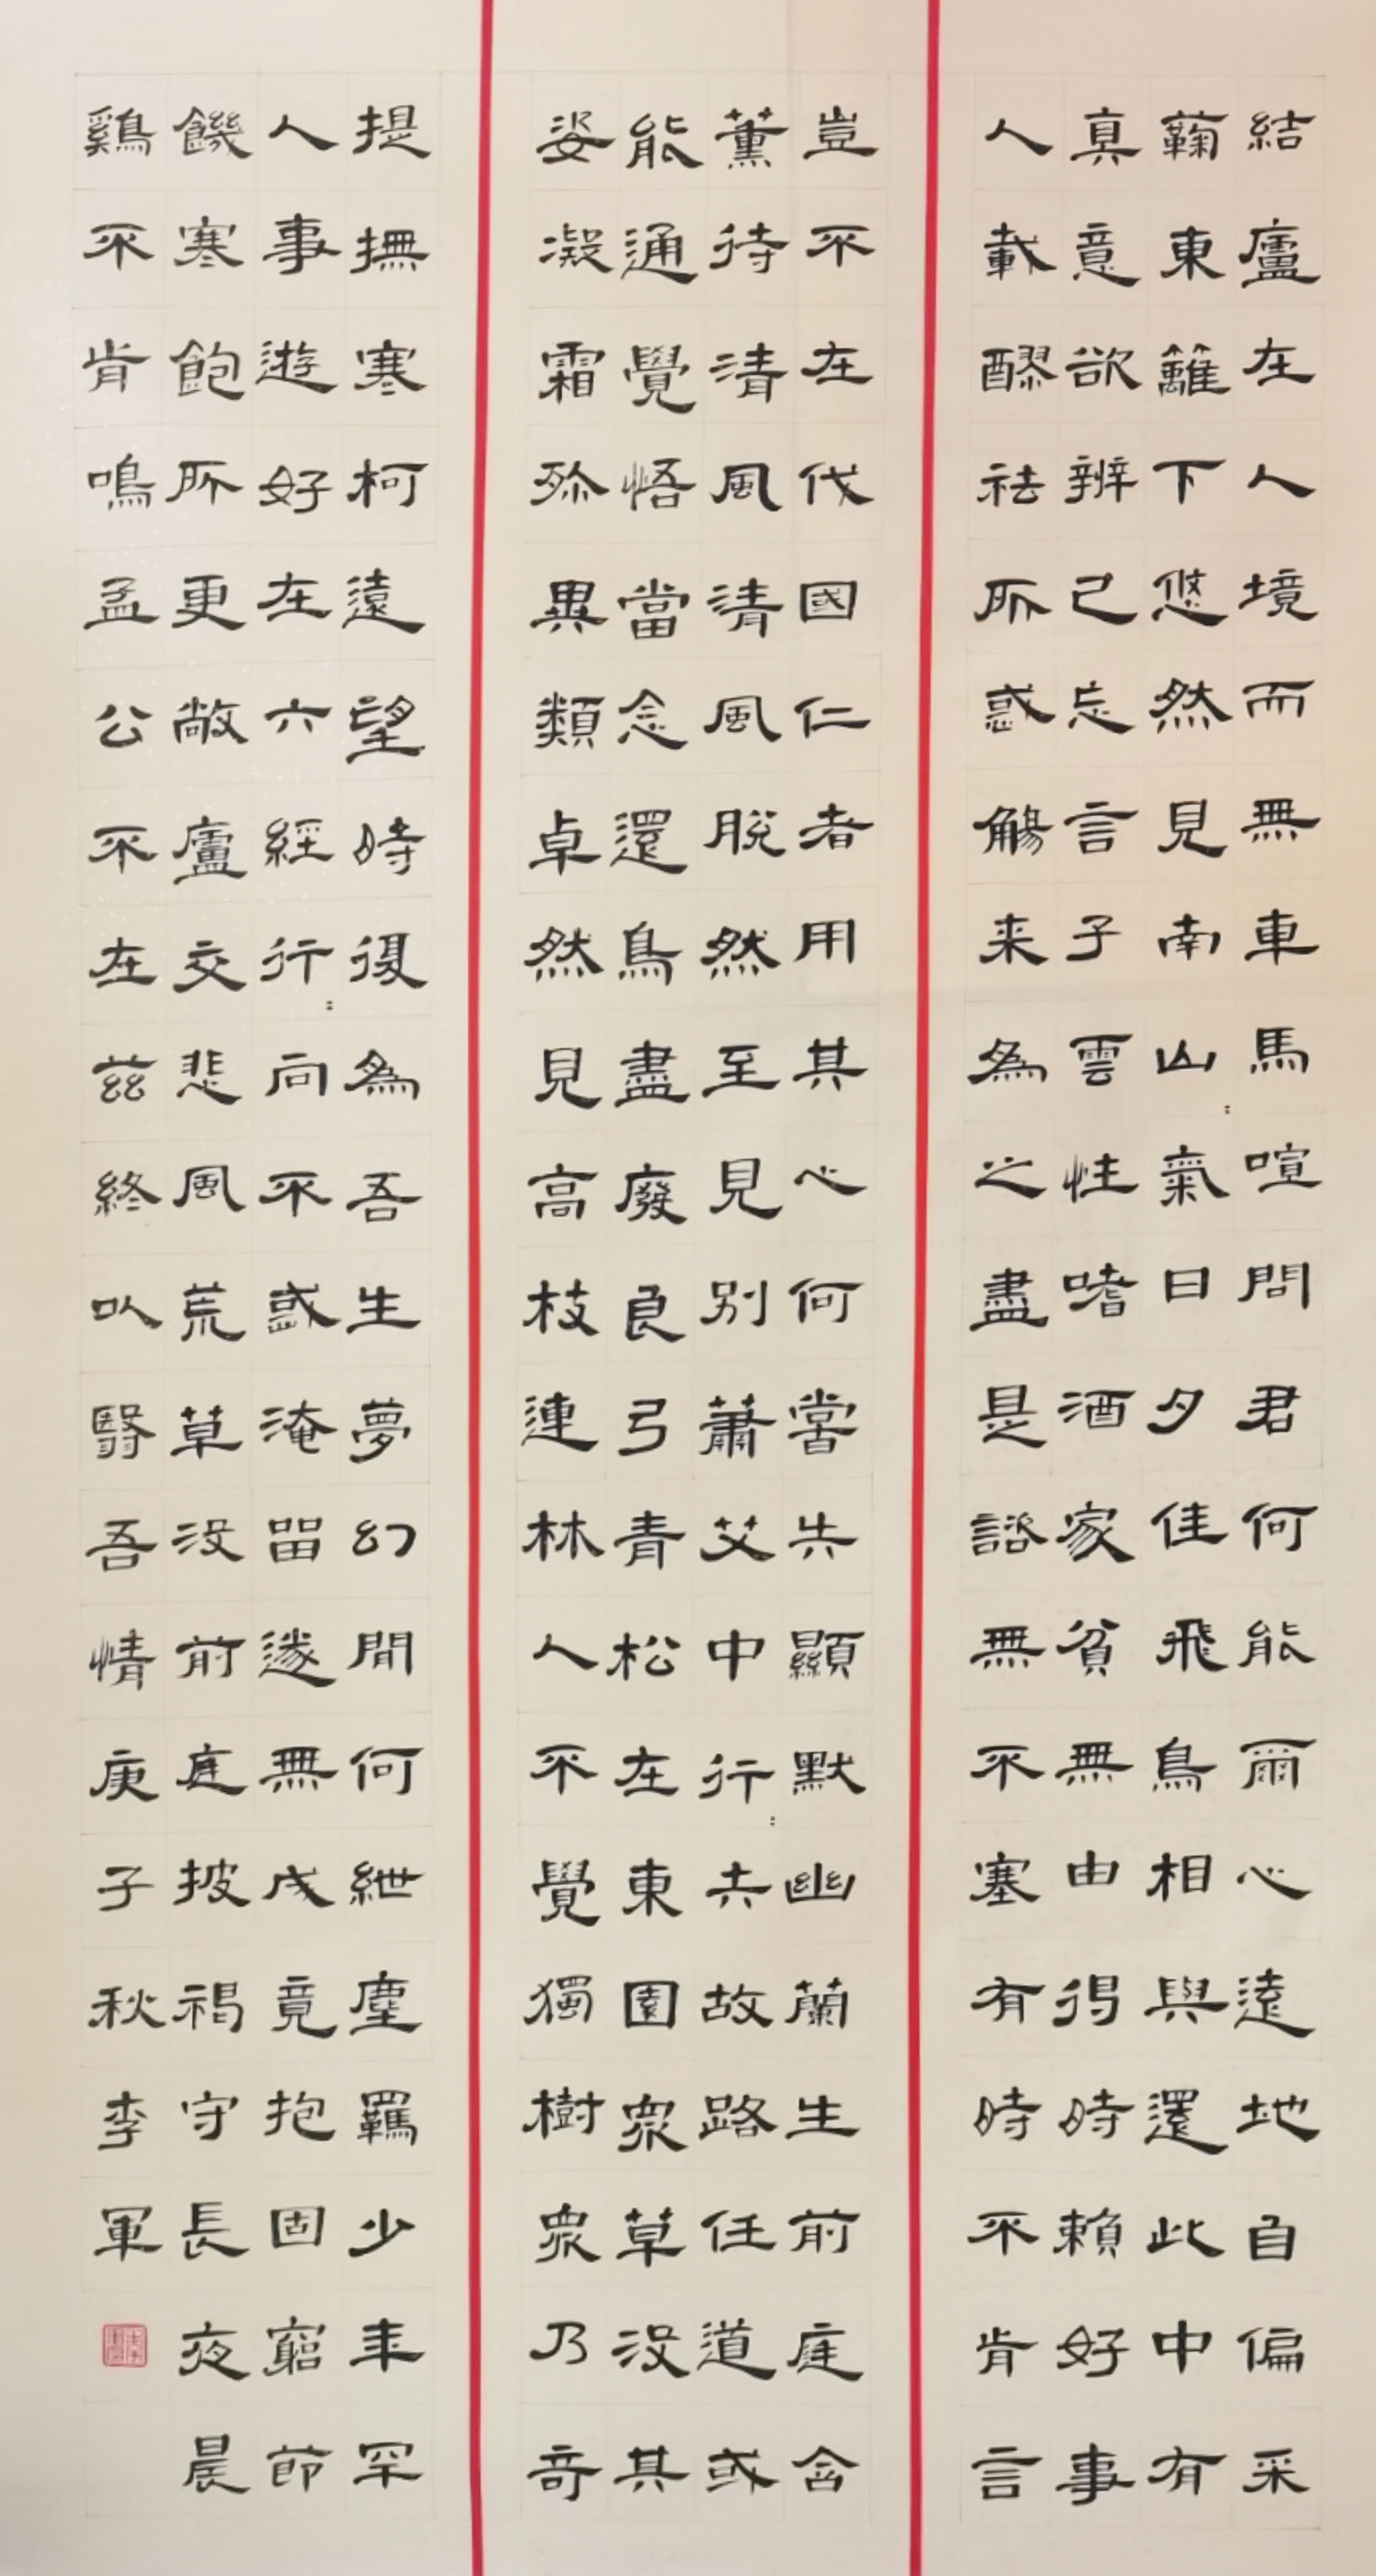 結廬在人境而無車馬喧問君何能爾心遠地自偏采
菊東籬下悠然見南山氣日夕佳飛鳥相與還此中有
真意欲辨已忘言子雲性嗜酒家貧無由得時賴好事
人載醪祛所惑觴来為之盡是諮無不塞有時不肯言
豈不在伐國仁者用其心何嘗失顯默幽蘭生前庭含
薰待清風清風脫然至見別蕭艾中行去故路任道或
能通覺悟當念還鳥盡廢良弓青松在東園衆草没其
姿凝霜殄異類卓然見高枝連林人不覺獨樹衆乃奇
提撫寒柯遠望時復為吾生夢幻間何紲塵羈少年罕
人事遊好在六經行=向不惑淹留遂無成竟抱固窮節
饑寒飽所更敝廬交悲風荒草没前庭披褐守長夜晨
鷄不肯鳴孟公不在茲終以翳吾情庚子秋李軍